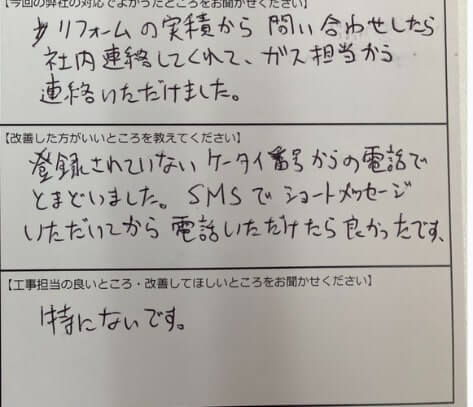 【今回の弊社の対応でよかったところをお聞かせください】
リフォームの実積から 問い合わせしたら
社内連絡してくれて、ガス担当から
連絡いただけました。
【改善した方がいいところを教えてください】
登録されていない ケータイ番号からの電話で
とまどいました。SMSで ショートメッセージ
いただいてから 電話いただけたら良かったです、
【工事担当の良いところ・改善してほしいところをお聞かせください】
特にないです。